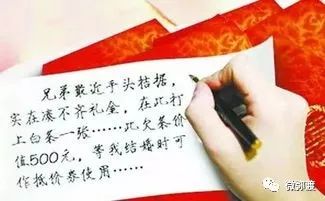 兄弟最近手头拮据，
实在凑不齐礼金，在此打
上白条一张……此欠条价
值500元，等我结婚时可
作抵价券使用……
微邻渡